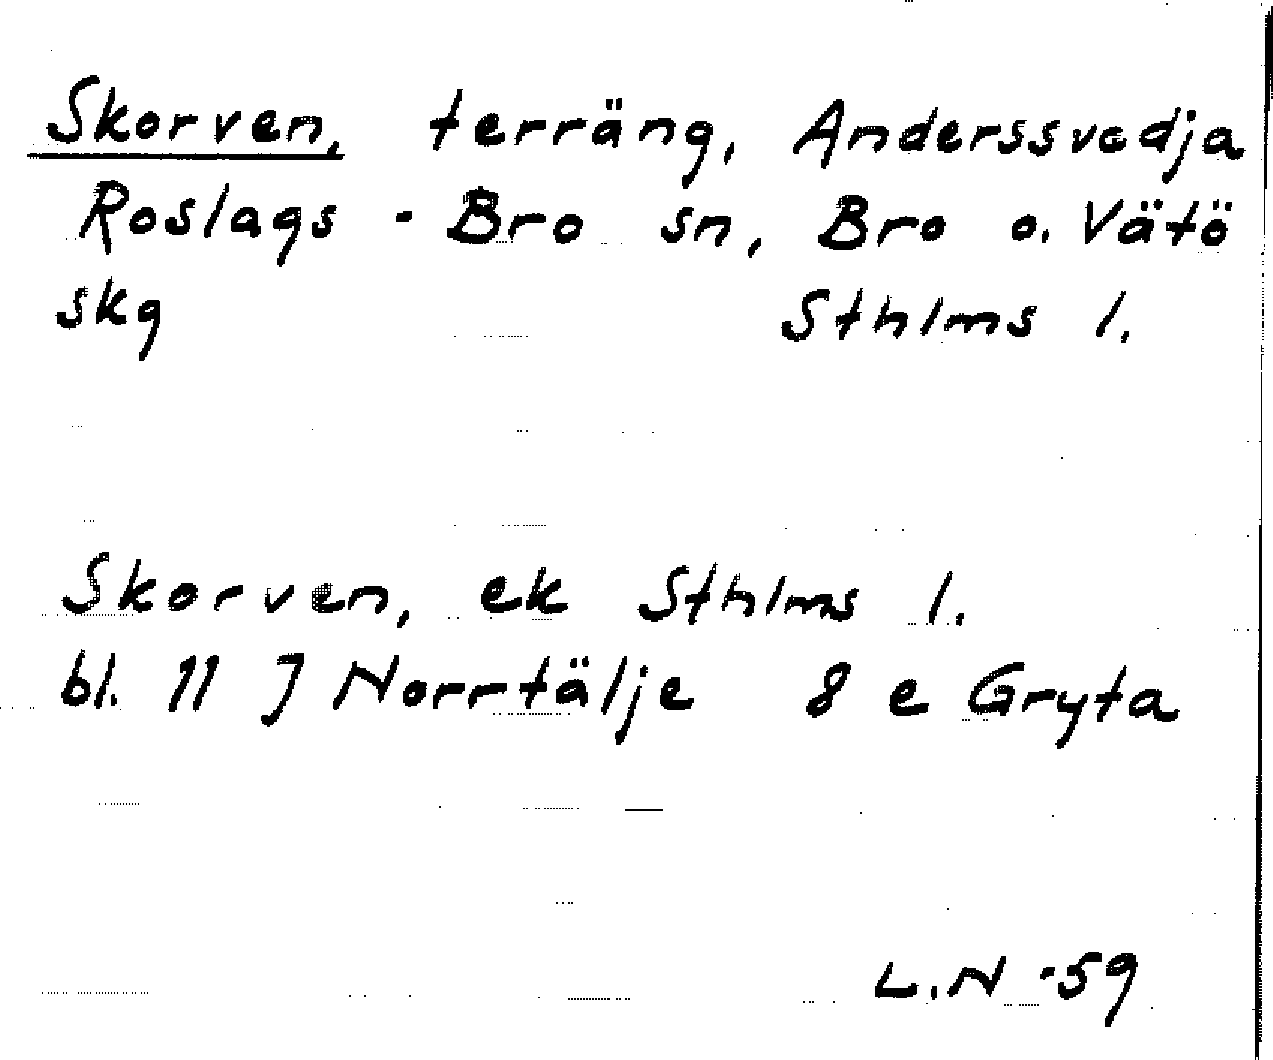 Skorven, terräng, Anderssvedja
Roslags - Bro sn, Bro o. Vätö
skg Sthlms l.
Skorven, ek Sthlms l.
bl. 11 J Norrtälje 8 e Gryta
L.N -59